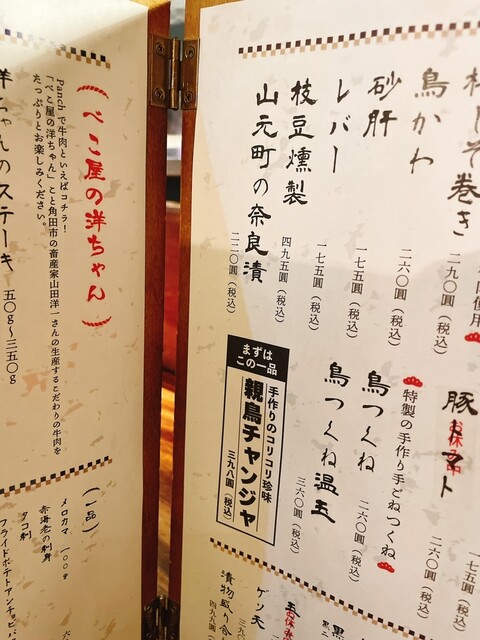 しそ巻き
二九〇圓（税込）
鳥かわ
二六〇圓（税込）
砂肝
一七五圓（税込）
レバー
一七五圓（税込）
枝豆燻製
四九五圓（税込）
山元町の奈良漬
二二〇圓（税込）
豚トマト
お休み中
二六〇圓（税込）
特製の手作り手どねつくね
鳥つくね
二六〇圓（税込）
鳥つくね温玉
三六〇圓（税込）
まずは
この一品
手作りのコリコリ珍味
親鳥チャンジャ
三九八圓（税込）
ゲソ天
漬物盛り合
（べこ屋の洋ちゃん）
Panchで牛肉といえばコチラ！
「べこ屋の洋ちゃん」こと角田市の畜産家山田洋一さんの生産するこだわりの牛肉を
たっぷりとお楽しみください。
洋ちゃんのステーキ 五〇g〜三五〇g
（一品）
メロカマ 一〇〇g
赤海老の刺身
タコ刺
フライドポテトアンチョビバ